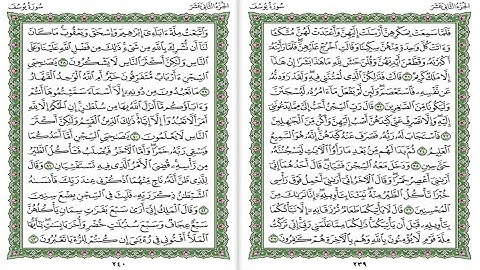 الجزء الثاني عشر
سورة يوسف
فلما سمعت بمكرهن أرسلت إليهن وأعتدت لهن متكئا
وءاتت كل وحدة منهن سكينا وقالت اخرج عليهن فلما رأينه
أكبرنه وقطعن أيديهن وقلن حش لله ما هذا بشرا إن هذا
إلا ملك كريم ٣١ قالت فذلكن الذي لمتنني فيه ولقد رودته
عن نفسه فاستعصم ولئن لم يفعل ما ءامره ليسجنن
وليكونا من الصغرين ٣٢ قال رب السجن أحب إلي مما يدعونني
إليه وإلا تصرف عني كيدهن أصب إليهن وأكن من الجهلين
٣٣ فاستجاب له ربه فصرف عنه كيدهن إنه هو السميع
العليم ٣٤ ثم بدا لهم من بعد ما رأوا الأيت ليسجننه
حتى حين ٣٥ ودخل معه السجن فتيان قال أحدهما إني
أرىني أعصر خمرا وقال الأخر إني أرىني أحمل فوق رأسي
خبزا تأكل الطير منه نبئنا بتأويله إنا نرىك من
المحسنين ٣٦ قال لا يأتيكما طعام ترزقانه إلا نبأتكما
بتأويله قبل أن يأتيكما ذلكما مما علمني ربي إني تركت
ملة قوم لا يؤمنون بالله وهم بالأخرة هم كفرون ٣٧
٢٣٩
الجزء الثاني عشر
سورة يوسف
واتبعت ملة ءاباءي إبرهيم وإسحق ويعقوب ما كان
لنا أن نشرك بالله من شيء ذلك من فضل الله علينا وعلى
الناس ولكن أكثر الناس لا يشكرون ٣٨ يصحبي
السجن ءأرباب متفرقون خير أم الله الوحد القهار
٣٩ ما تعبدون من دونه إلا أسماء سميتموها أنتم
وءاباؤكم ما أنزل الله بها من سلطن إن الحكم إلا لله
أمر ألا تعبدوا إلا إياه ذلك الدين القيم ولكن أكثر
الناس لا يعلمون ٤٠ يصحبي السجن أما أحدكما
فيسقي ربه خمرا وأما الأخر فيصلب فتأكل الطير
من رأسه قضي الأمر الذي فيه تستفتيان ٤١ وقال
للذي ظن أنه ناج منهما اذكرني عند ربك فأنسىه
الشيطن ذكر ربه فلبث في السجن بضع سنين
٤٢ وقال الملك إني أرى سبع بقرت سمان يأكلهن
سبع عجاف وسبع سنبلت خضر وأخر يابست يأيها
الملأ أفتوني في رءيي إن كنتم للرءيا تعبرون ٤٣
٢٤٠